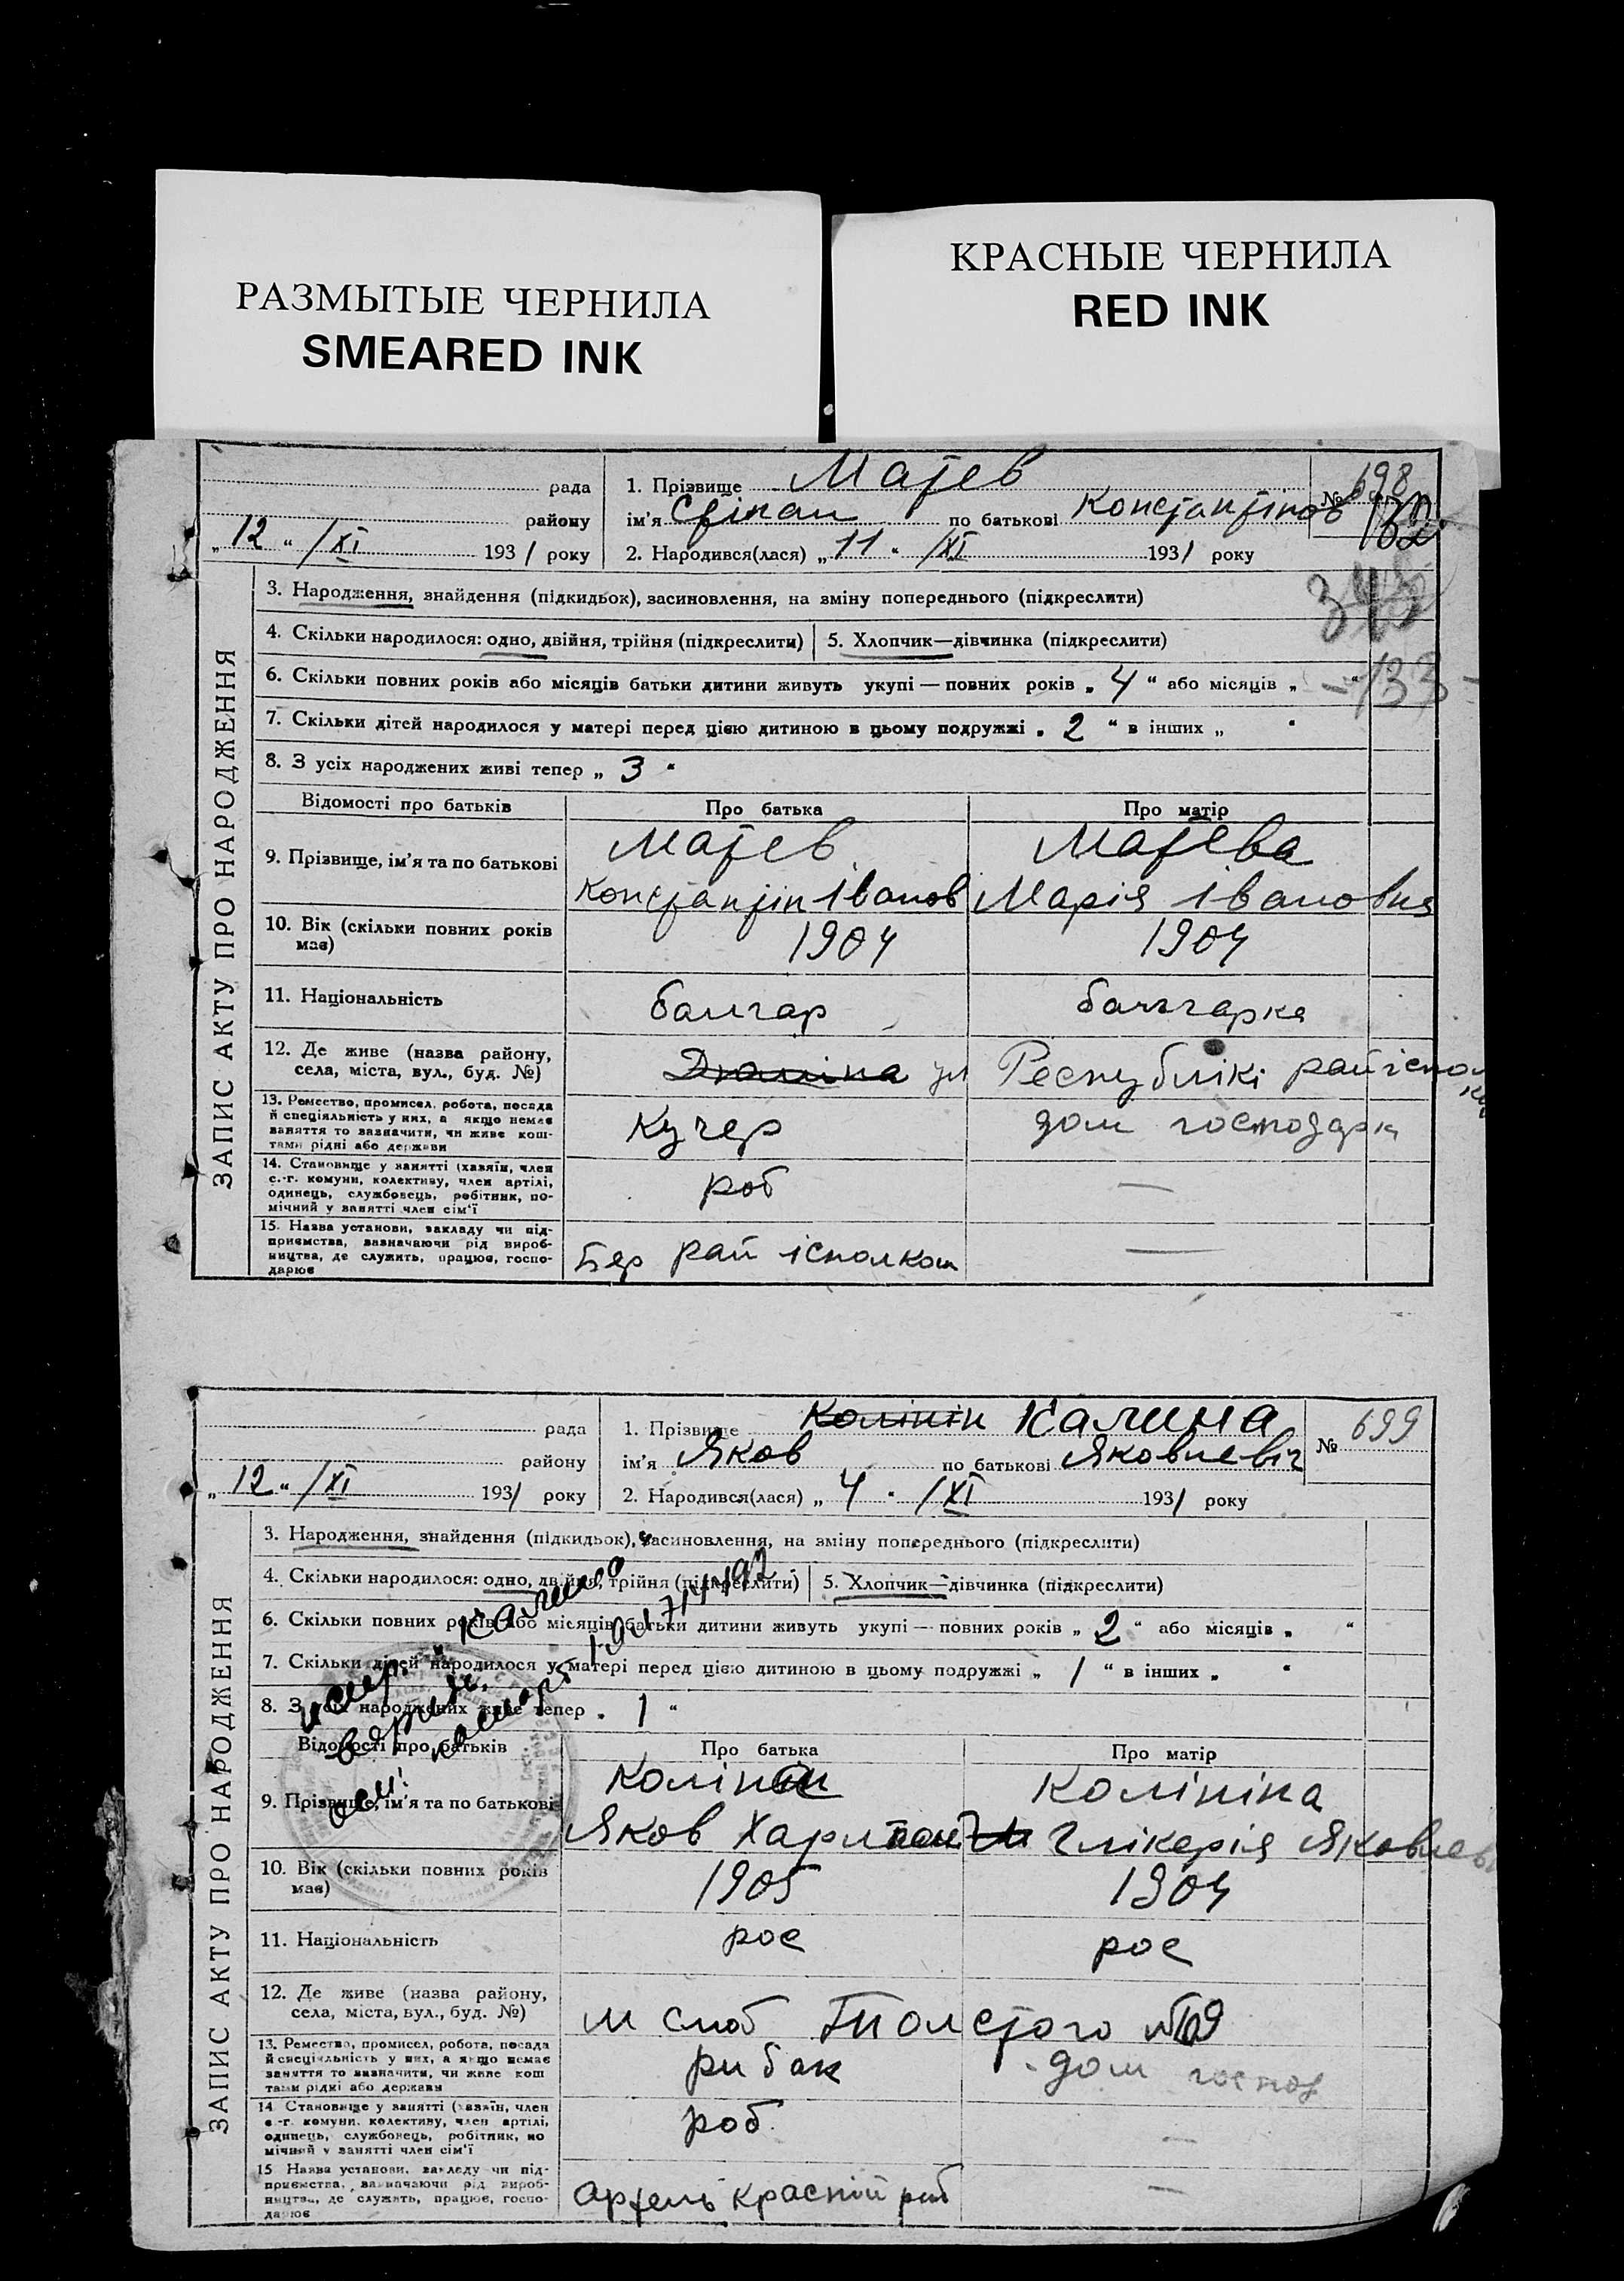 РАЗМЫТЫЕ ЧЕРНИЛА
SMEARED INK
КРАСНЫЕ ЧЕРНИЛА
RED INK
ЗАПИС АКТУ ПРО НАРОДЖЕННЯ
рада
району
„ 12 “ /XI 1931 року
1. Прізвище Матев
ім'я Стіпан по батькові Констянтінов
№ 698
2. Народився(лася) „ 11 “ /XI 1931 року
3. Народження, знайдення (підкидьок), засиновлення, на зміну попереднього (підкреслити)
4. Скільки народилося: одно, двійня, трійня (підкреслити)
5. Хлопчик—дівчинка (підкреслити)
6. Скільки повних років або місяців батьки дитини живуть укупі — повних років „ 4 “ або місяців „ “
- 133 -
7. Скільки дітей народилося у матері перед цією дитиною в цьому подружжі „ 2 “ в інших „ “
8. З усіх народжених живі тепер „ 3 “
Відомості про батьків Про батька Про матір
9. Прізвище, ім'я та по батькові
Матев Матева
Констянтін Іванов Марія Івановна
10. Вік (скільки повних років має) 1904 1904
11. Національність болгар болгарка
12. Де живе (назва району, села, міста, вул., буд. №)
Дюміна ул Республікі райісполк
13. Ремество, промисел, робота, посада й спеціяльність у них, а якщо немає заняття то зазначити, чи живе коштами рідні або держави
Кучер дом господарка
14. Становище у занятті (хазяїн, член с.-г. комуни, колективу, член артілі, одинець, службовець, робітник, помічний у занятті член сім'ї
роб —
15. Назва установи, закладу чи підприємства, зазначаючи рід виробництва, де служить, працює, господарює
Бер рай ісполком —
ЗАПИС АКТУ ПРО НАРОДЖЕННЯ
рада
району
„ 12 “ /XI 1931 року
1. Прізвище Колінін Калина
ім'я Яков по батькові Яковлевіч
№ 699
2. Народився(лася) „ 4 “ /XI 1931 року
3. Народження, знайдення (підкидьок), засиновлення, на зміну попереднього (підкреслити)
4. Скільки народилося: одно, двійня, трійня (підкреслити)
5. Хлопчик—дівчинка (підкреслити)
6. Скільки повних років або місяців батьки дитини живуть укупі — повних років „ 2 “ або місяців „ “
7. Скільки дітей народилося у матері перед цією дитиною в цьому подружжі „ 1 “ в інших „ “
8. З усіх народжених живе тепер „ 1 “
Калина
Відомості про батьків Про батька Про матір
9. Прізвище, ім'я та по батькові
Колініна
Яков Глікерія Яковлев
10. Вік (скільки повних років має) 1905 1904
11. Національність рос рос
12. Де живе (назва району, села, міста, вул., буд. №)
м слоб Толстого №109
13. Ремество, промисел, робота, посада й спеціяльність у них, а якщо немає заняття то зазначити, чи живе коштами рідні або держави
рибак дом господ
14. Становище у занятті (хазяїн, член с.-г. комуни, колективу, член артілі, одинець, службовець, робітник, помічний у занятті член сім'ї
роб. —
15. Назва установи, закладу чи підприємства, зазначаючи рід виробництва, де служить, працює, господарює
артель красній риб —